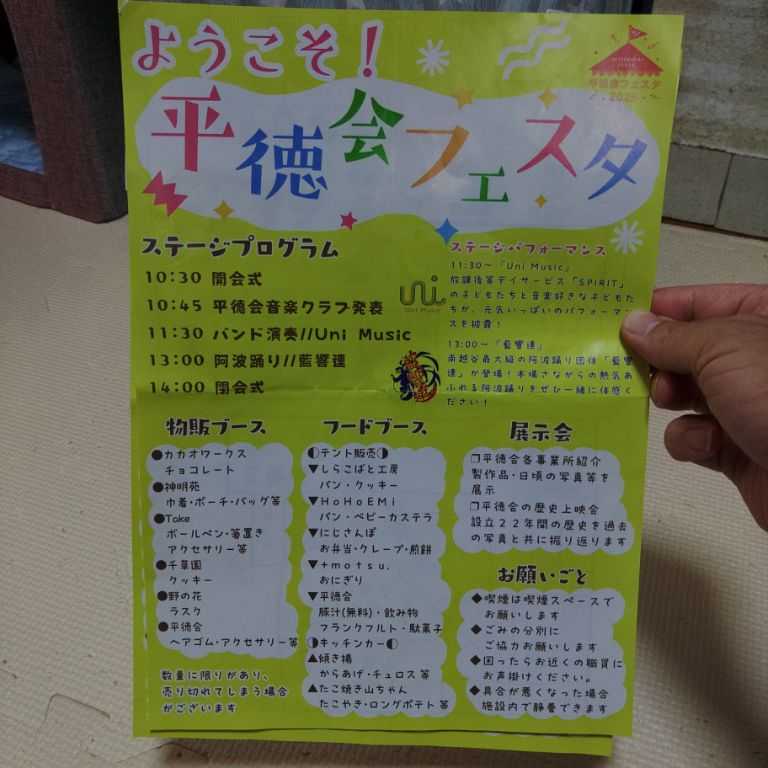 ようこそ！
平徳会フェスタ
2025
平徳会フェスタ
ステージプログラム
10:30 開会式
10:45 平徳会音楽クラブ発表
11:30 バンド演奏//Uni Music
13:00 阿波踊り//藍響連
14:00 閉会式
uni
Uni Music
ステージパフォーマンス
11:30～「Uni Music」
放課後等デイサービス「SPIRIT」
の子どもたちと音楽好きな子どもた
ちが、元気いっぱいのパフォーマン
スを披露！
13:00～「藍響連」
南越谷最大級の阿波踊り団体「藍響
連」が登場！本場さながらの熱気あ
ふれる阿波踊りをぜひ一緒に体感く
ださい！
物販ブース
●カカオワークス
チョコレート
●神明苑
巾着・ポーチ・バッグ等
●Toke
ボールペン・箸置き
アクセサリー等
●千草園
クッキー
●野の花
ラスク
●平徳会
ヘアゴム・アクセサリー等
数量に限りがあり、
売り切れてしまう場合
がございます
フードブース
◐テント販売◑
▼しらこばと工房
パン・クッキー
▼HoHoEMi
パン・ベビーカステラ
▼にじさんぽ
お弁当・クレープ・煎餅
▼+motsu.
おにぎり
▼平徳会
豚汁(無料)・飲み物
フランクフルト・駄菓子
◑キッチンカー◐
▲傾き揚
からあげ・チュロス等
▲たこ焼き山ちゃん
たこやき・ロングポテト等
展示会
❐平徳会各事業所紹介
製作品・日頃の写真等を
展示
❐平徳会の歴史上映会
設立22年間の歴史を過去
の写真と共に振り返ります
お願いごと
◆喫煙は喫煙スペースで
お願いします
◆ごみの分別に
ご協力お願いします
◆困ったらお近くの職員に
お声掛けください。
◆具合が悪くなった場合
施設内で静養できます